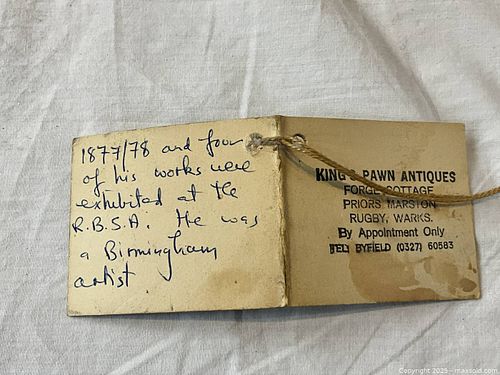 1877/78 and four
of his works were
exhibited at the
R.B.S.A. He was
a Birmingham
artist
KING'S PAWN ANTIQUES
FORGE COTTAGE
PRIORS MARSTON
RUGBY, WARKS.
By Appointment Only
TEL: BYFIELD (0327) 60583
Copyright 2025 - maxsold.com